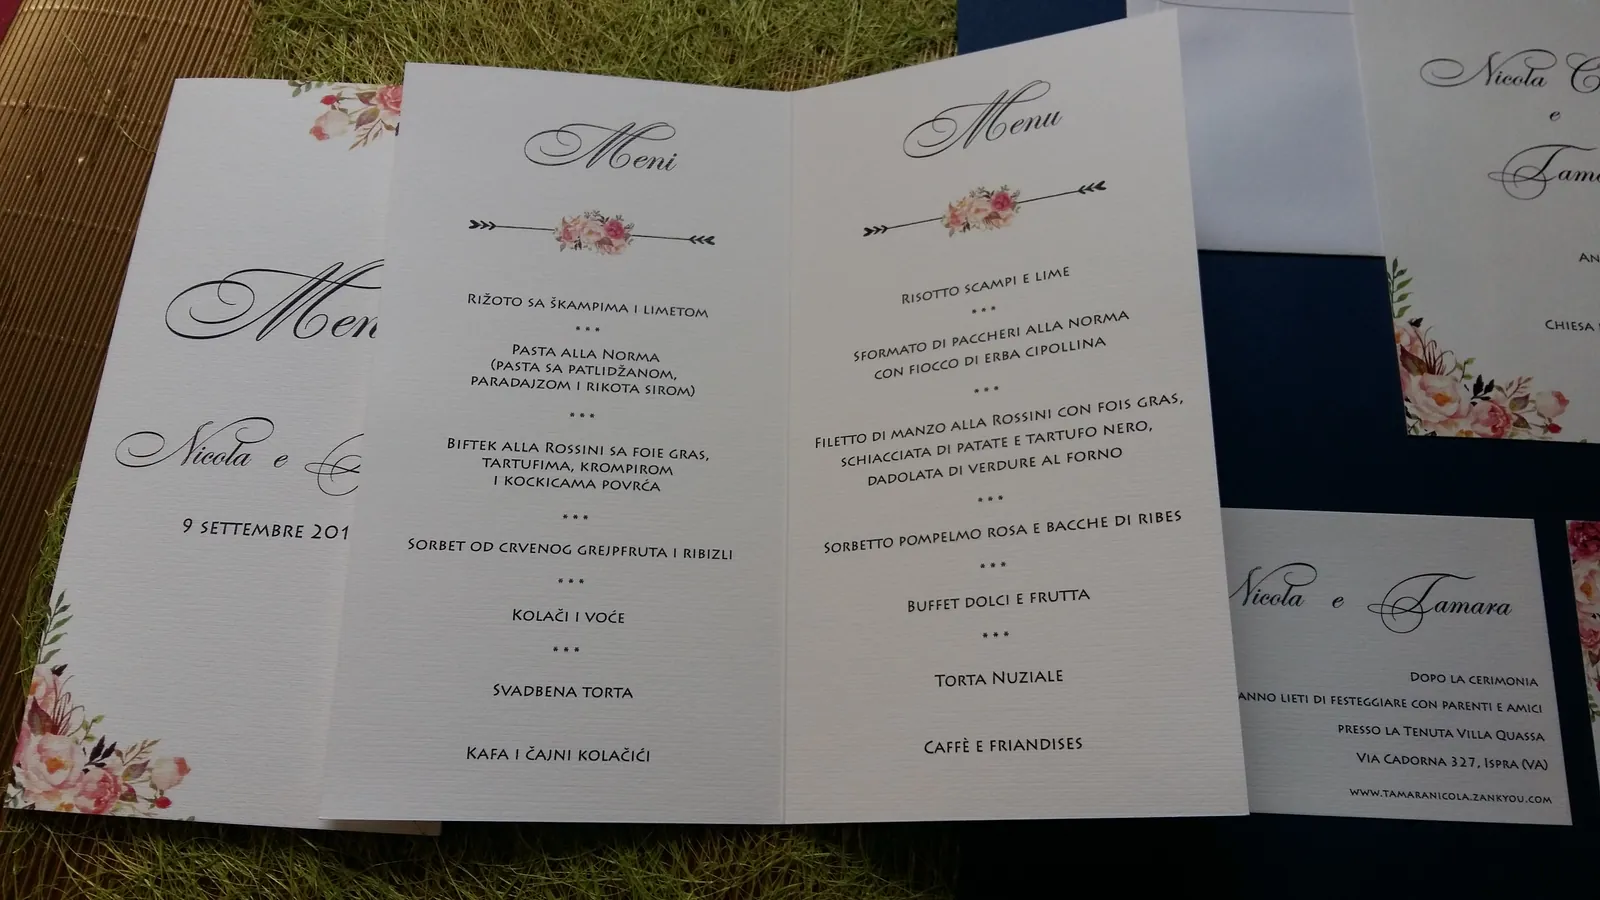 Nicola e
9 settembre 201
Meni
Rižoto sa škampima i limetom
***
Pasta alla Norma
(pasta sa patlidžanom,
paradajzom i rikota sirom)
***
Biftek alla Rossini sa foie gras,
tartufima, krompirom
i kockicama povrća
***
Sorbet od crvenog grejpfruta i ribizli
***
Kolači i voće
***
Svadbena torta
Kafa i čajni kolačići
Menu
Risotto scampi e lime
***
sformato di paccheri alla norma
con fiocco di erba cipollina
***
Filetto di manzo alla Rossini con fois gras,
schiacciata di patate e tartufo nero,
dadolata di verdure al forno
***
Sorbetto pompelmo rosa e bacche di ribes
***
Buffet dolci e frutta
***
Torta Nuziale
Caffè e friandises
Nicola
e
Chiesa
Nicola e Tamara
Dopo la cerimonia
lieti di festeggiare con parenti e amici
presso la Tenuta Villa Quassa
Via Cadorna 327, Ispra (VA)
www.tamaranicola.zankyou.com